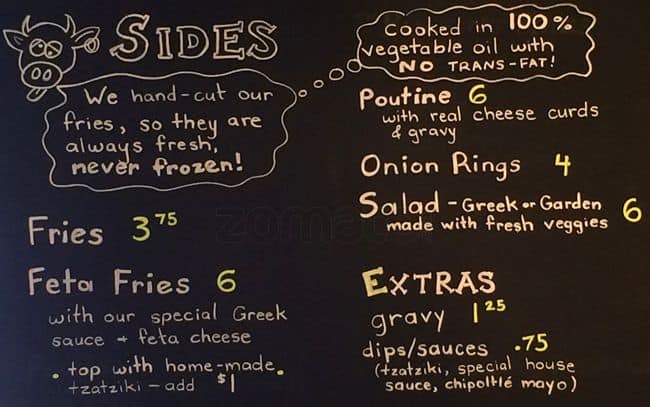 SIDES
We hand-cut our
fries, so they are
always fresh,
never frozen!
Fries 3 75
Feta Fries 6
with our special Greek
sauce + feta cheese
• top with home-made •
tzatziki - add $1
Cooked in 100%
vegetable oil with
NO TRANS-FAT!
Poutine 6
with real cheese curds
& gravy
Onion Rings 4
Salad - Greek or Garden 6
made with fresh veggies
EXTRAS
gravy 1 25
dips/sauces .75
(tzatziki, special house
sauce, chipoltlé mayo)
zomato